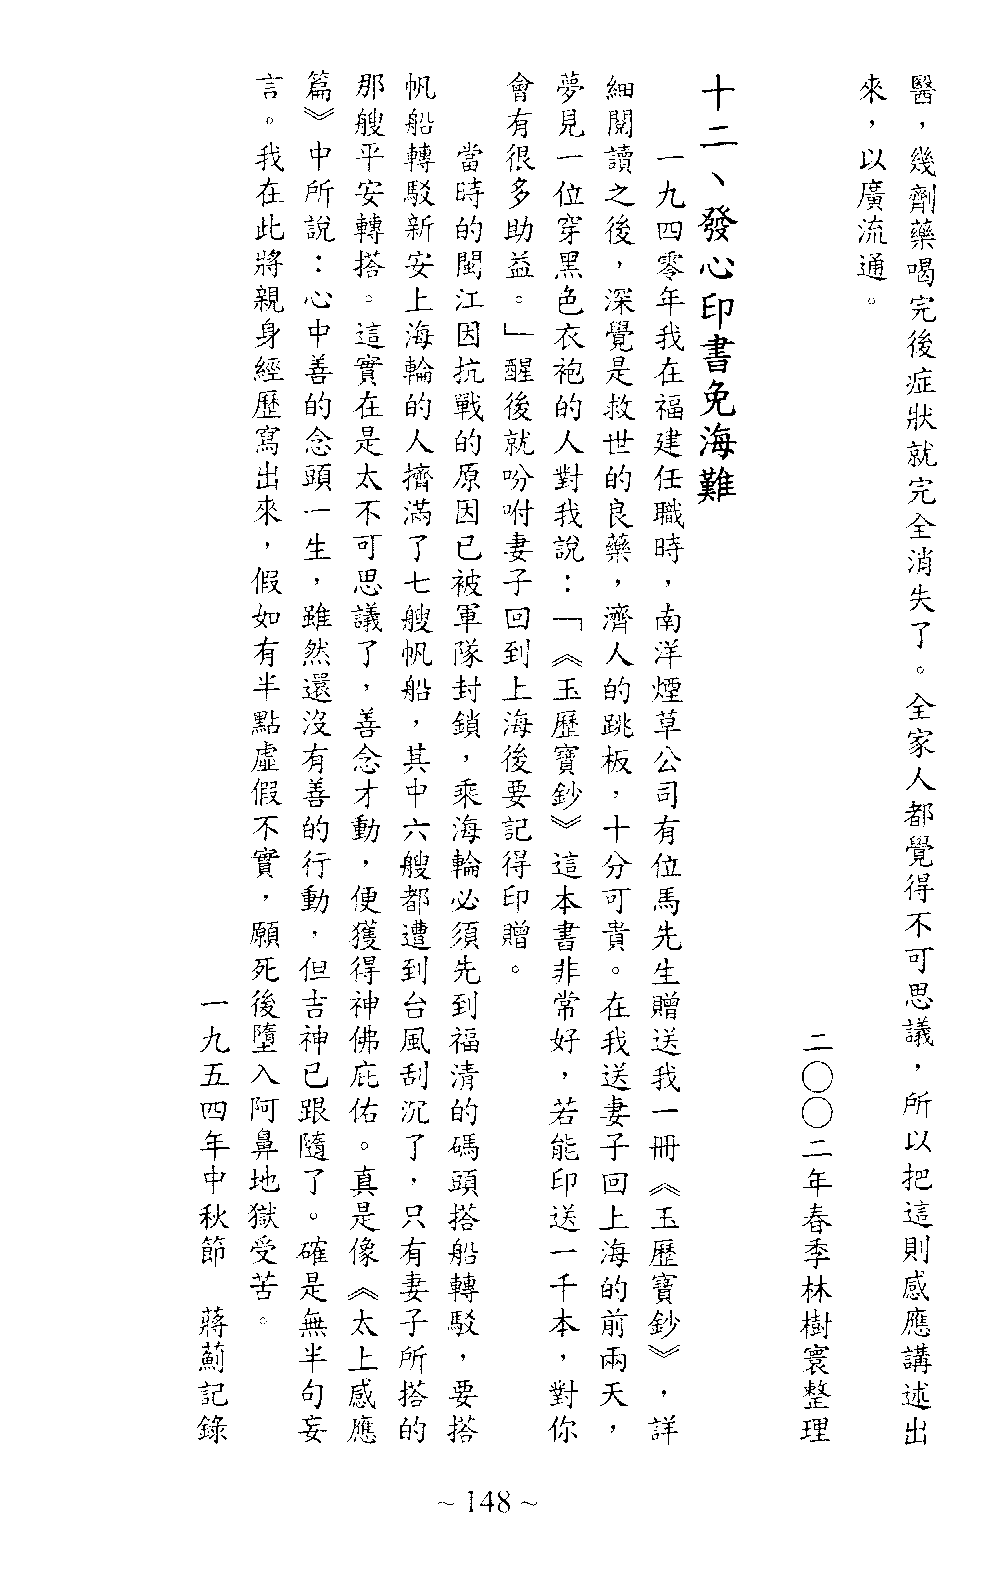 醫，幾劑藥喝完後症狀就完全消失了。全家人都覺得不可思議，所以把這則感應講述出
來，以廣流通。
二〇〇二年春季林樹寰整理
十二、發心印書免海難
一九四零年我在福建任職時，南洋煙草公司有位馬先生贈送我一冊《玉歷寶鈔》，詳
細閱讀之後，深覺是救世的良藥，濟人的跳板，十分可貴。在我送妻子回上海的前兩天，
夢見一位穿黑色衣袍的人對我說：「《玉歷寶鈔》這本書非常好，若能印送一千本，對你
會有很多助益。」醒後就吩咐妻子回到上海後要記得印贈。
當時的閩江因抗戰的原因已被軍隊封鎖，乘海輪必須先到福清的碼頭搭船轉駁，要搭
帆船轉駁新安上海輪的人擠滿了七艘帆船，其中六艘都遭到台風刮沉了，只有妻子所搭的
那艘平安轉搭。這實在是太不可思議了，善念才動，便獲得神佛庇佑。真是像《太上感應
篇》中所說：心中善的念頭一生，雖然還沒有善的行動，但吉神已跟隨了。確是無半句妄
言。我在此將親身經歷寫出來，假如有半點虛假不實，願死後墮入阿鼻地獄受苦。
一九五四年中秋節　蔣薊記錄
~148~